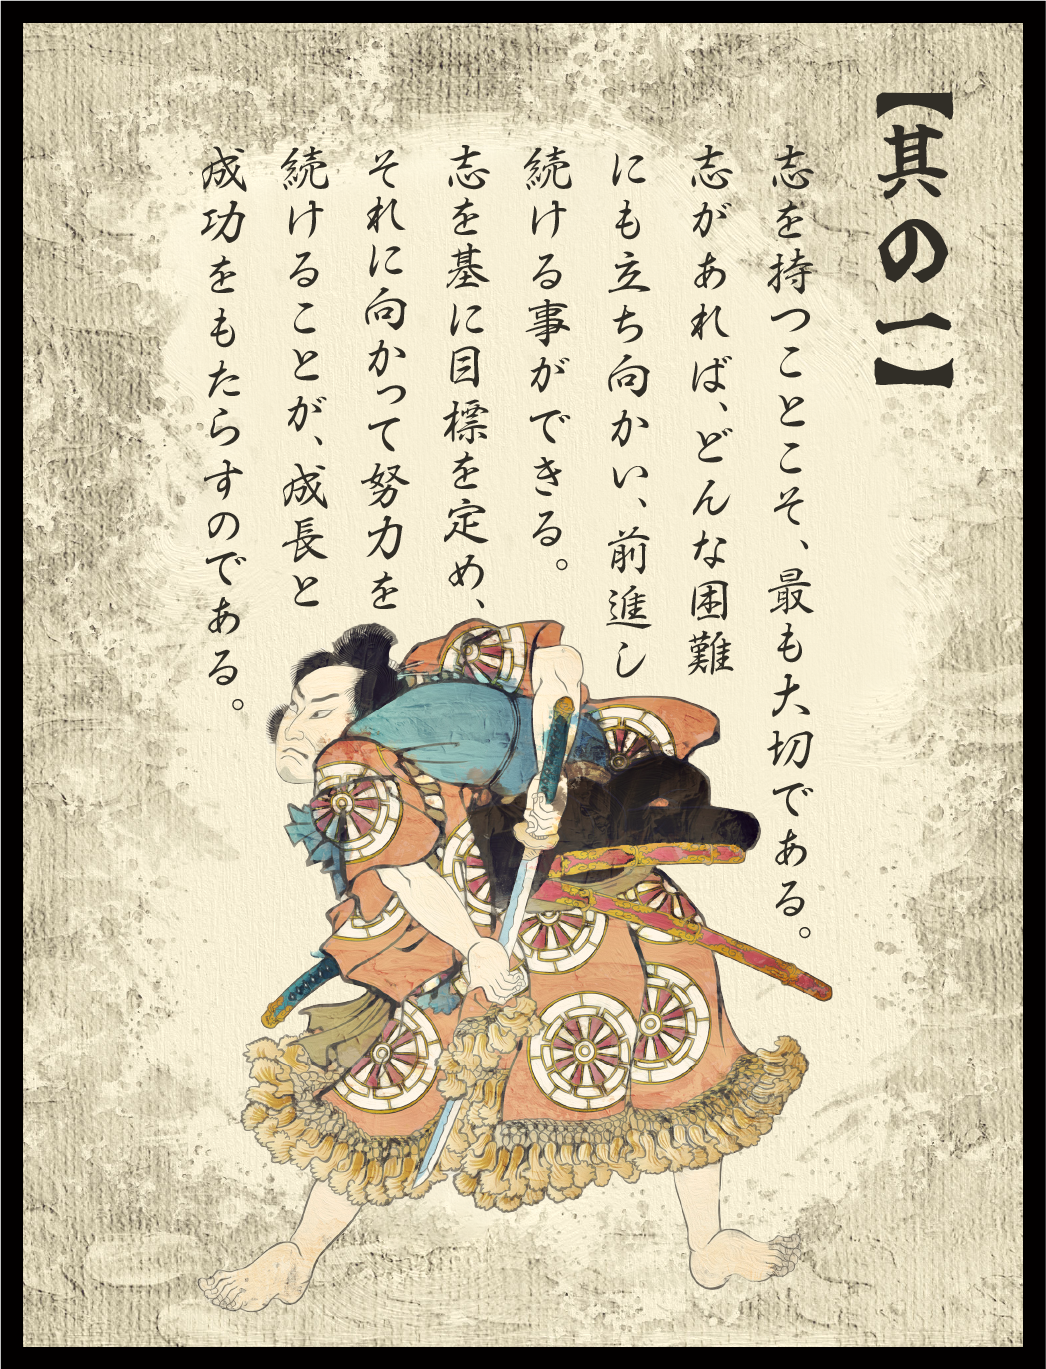 【其の一】
志を持つことこそ、最も大切である。
志があれば、どんな困難
にも立ち向かい、前進し
続ける事ができる。
志を基に目標を定め、
それに向かって努力を
続けることが、成長と
成功をもたらすのである。